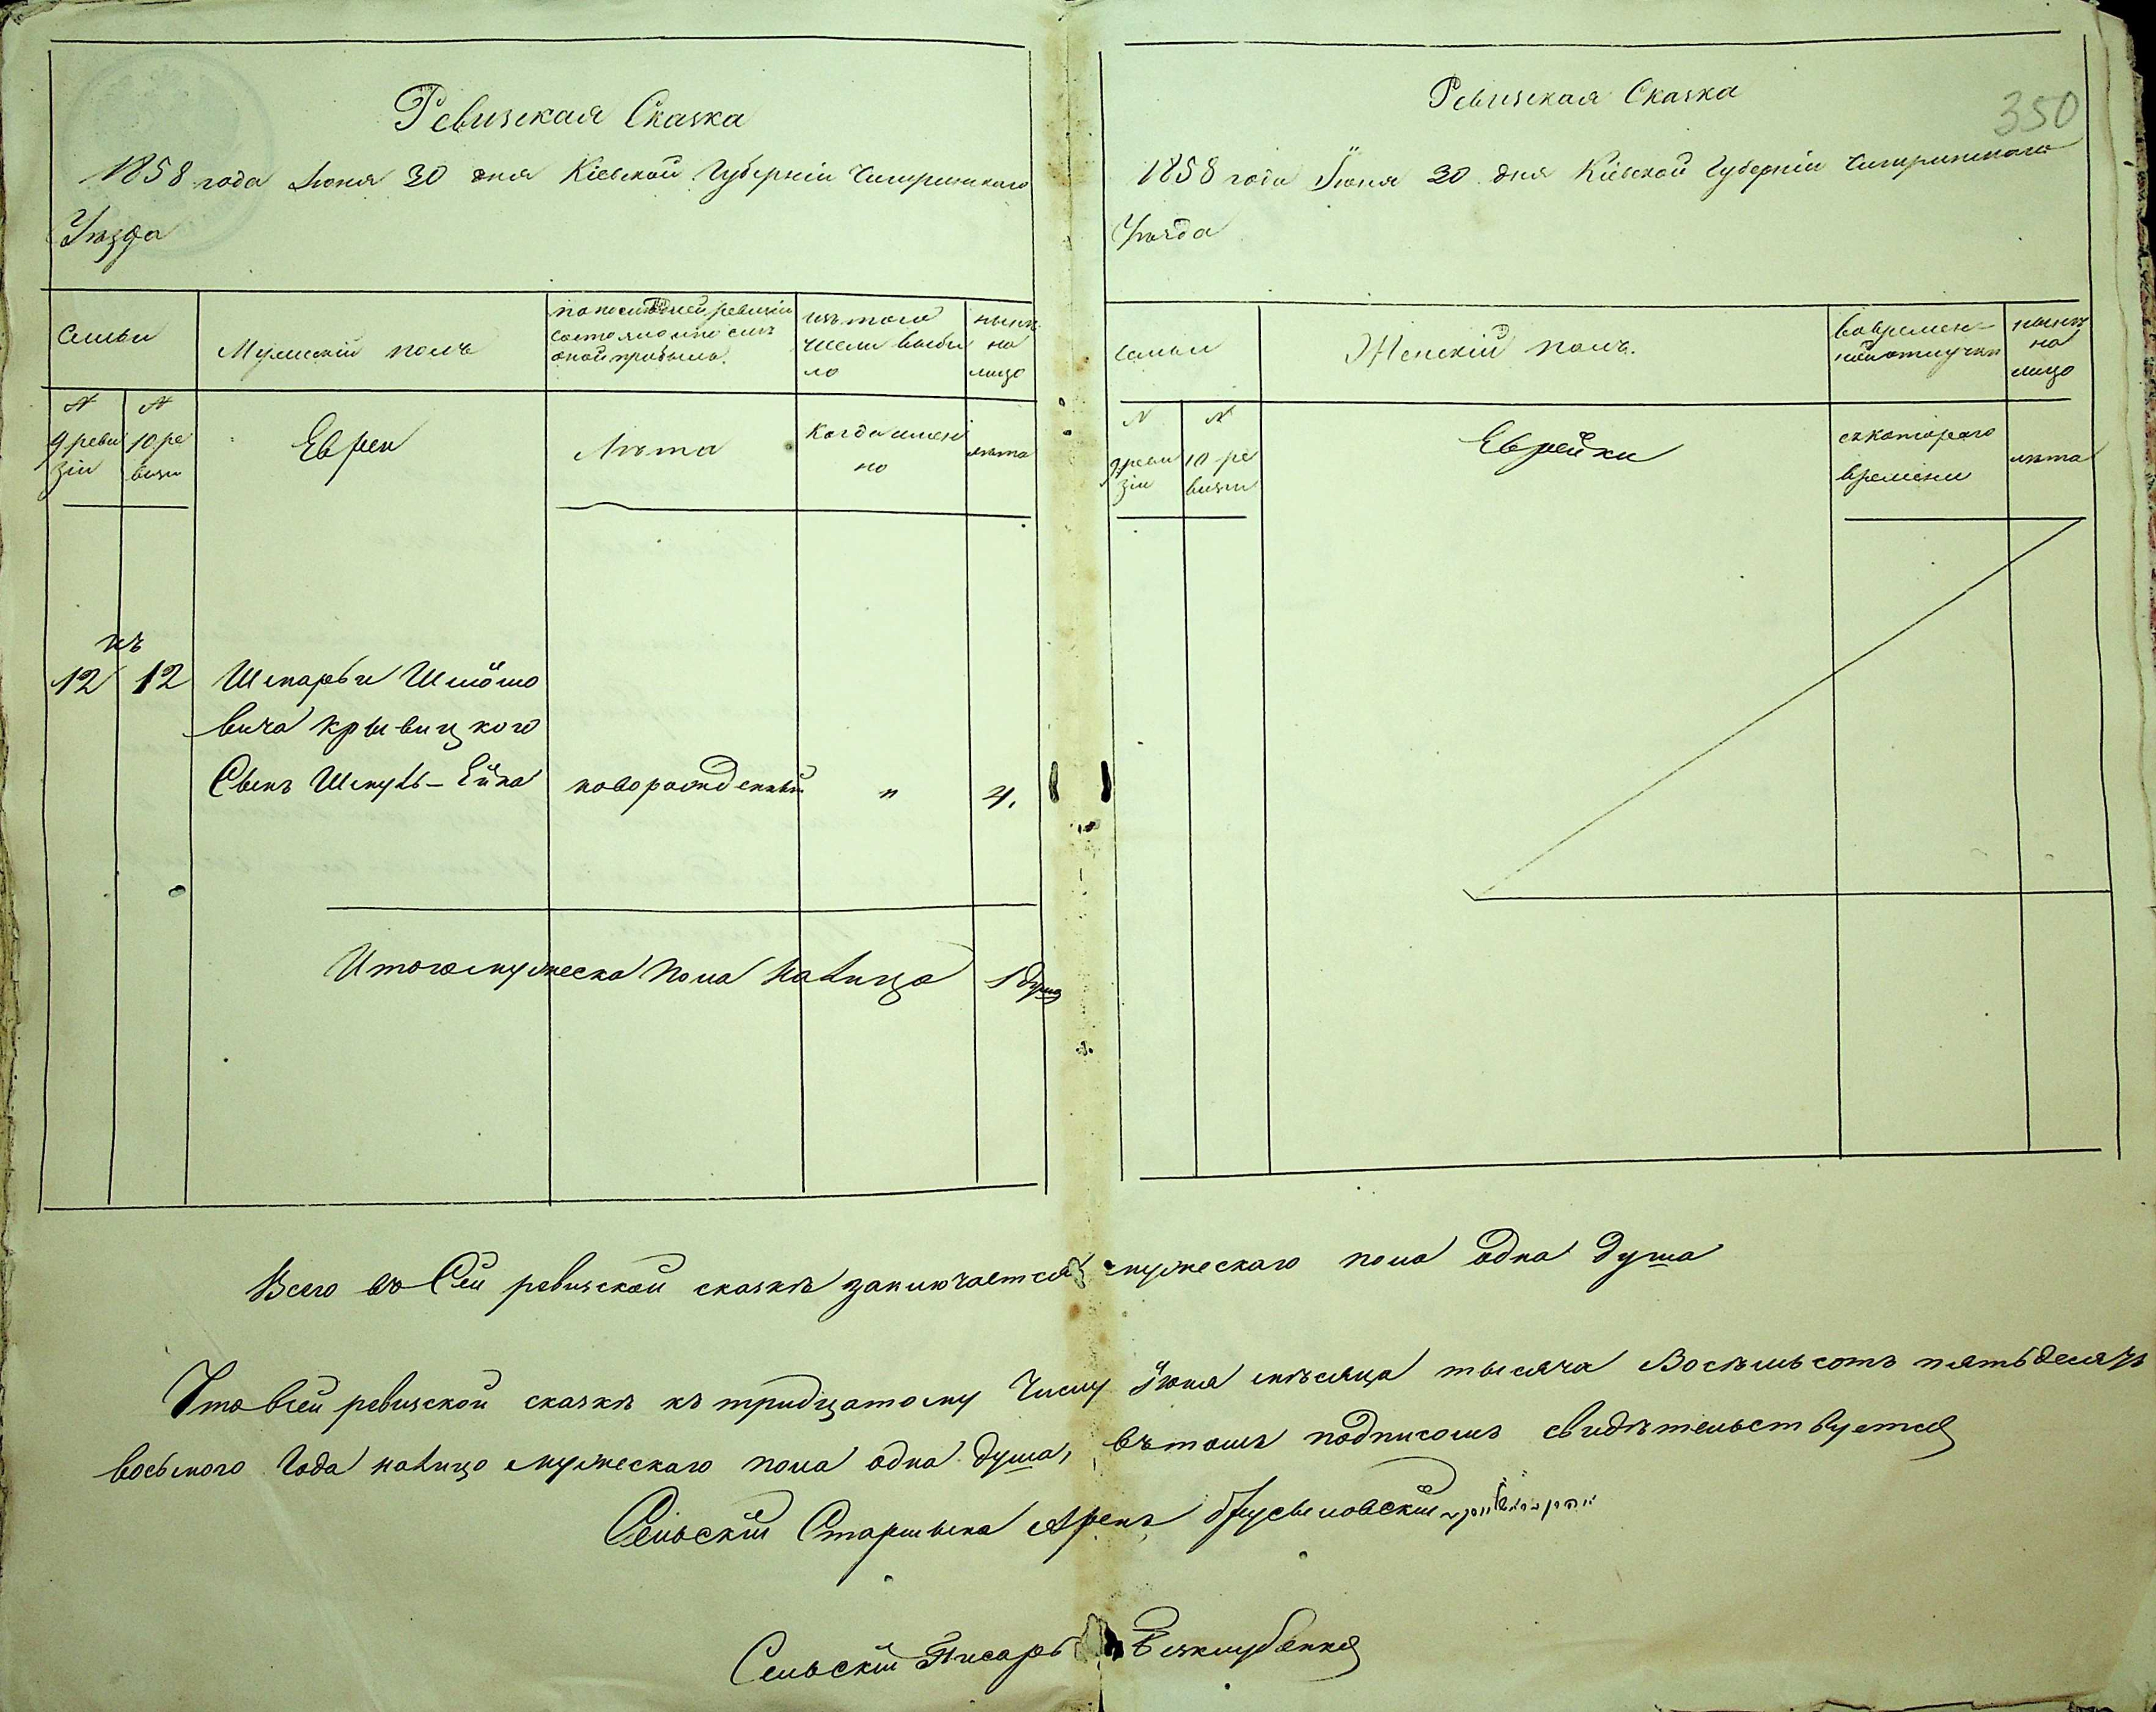 Ревизская Сказка
1858 года Июня 30 дня Кіевской Губерніи Чигиринскаго
Уѣзда
Семьи
Мужескій полъ
по последней ревизіи
состояло или послѣ
оной прибыло.
изъ того
числа выбы
ло
нынѣ
на
лицо
N
9 реви
зіи
N
10 ре
визіи
Евреи
Лѣта
Когда имен
но
лѣта
къ
12 12
Вича Крывицкого
Сынъ
новорожденный
"
4.
Итого мужеска пола налицо 1 душа
Ревизская Сказка
350
1858 года Іюня 30 дня Кіевской Губерніи Чигиринскаго
Уѣзда
семьи
Женскій полъ.
во времен-
ной отлучки
нынѣ
на
лицо
N
9 реви
зіи
N
10 ре
визіи
Еврейки
съ котораго
времени
лѣта
Всего въ Сей ревизской сказкѣ заключается мужескаго пола одна душа
Что в сей ревизской сказкѣ къ тридцатому Числу Іюня мѣсяца тысяча Восѣмьсотъ пятьдесятъ
восьмого Года налицо мужескаго пола одна душа, въ томъ подписомъ свидѣтельствуется
Сельскій Старшына Аренъ
Сельскій Писарь